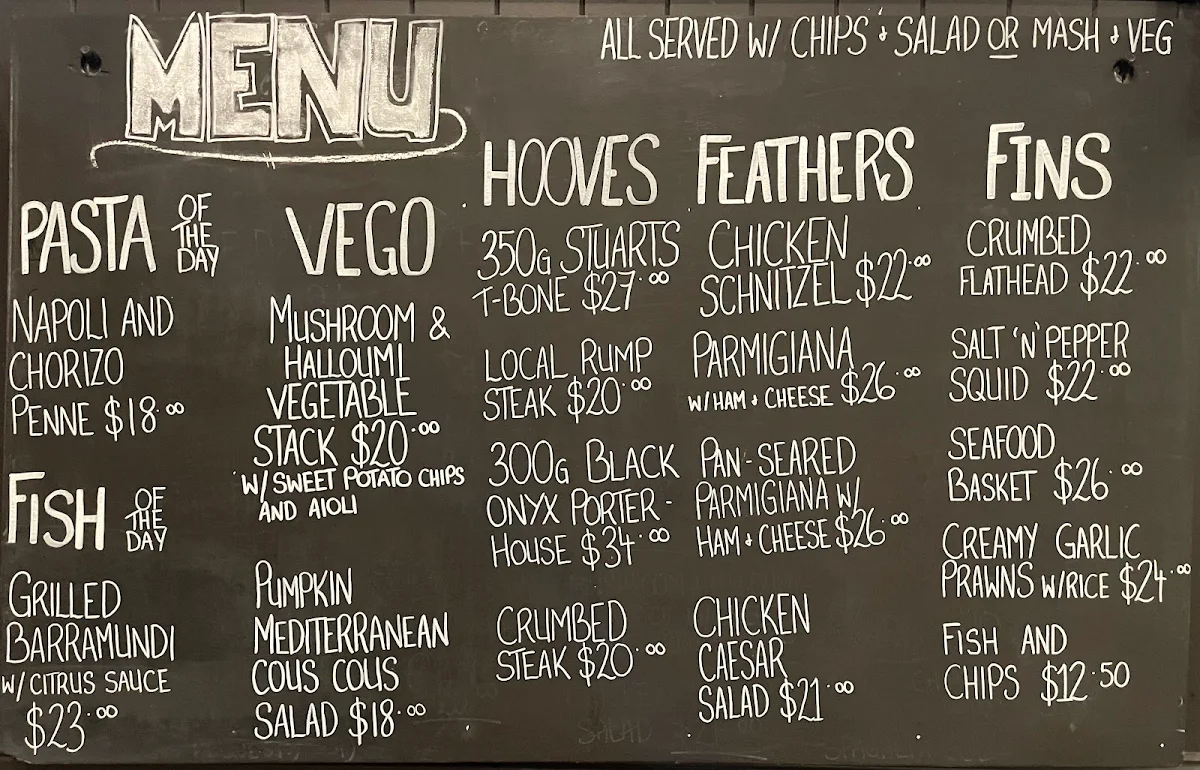 MENU
ALL SERVED W/ CHIPS & SALAD OR MASH & VEG
PASTA OF THE DAY
NAPOLI AND
CHORIZO
PENNE $18.00
FISH OF THE DAY
GRILLED
BARRAMUNDI
W/ CITRUS SAUCE
$23.00
VEGO
MUSHROOM &
HALLOUMI
VEGETABLE
STACK $20.00
W/ SWEET POTATO CHIPS
AND AIOLI
PUMPKIN
MEDITERRANEAN
COUS COUS
SALAD $18.00
HOOVES
350G STUARTS
T-BONE $27.00
LOCAL RUMP
STEAK $20.00
300G BLACK
ONYX PORTER-
HOUSE $34.00
CRUMBED
STEAK $20.00
FEATHERS
CHICKEN
SCHNITZEL $22.00
PARMIGIANA
W/ HAM & CHEESE $26.00
PAN-SEARED
PARMIGIANA W/
HAM & CHEESE $26.00
CHICKEN
CAESAR
SALAD $21.00
FINS
CRUMBED
FLATHEAD $22.00
SALT 'N' PEPPER
SQUID $22.00
SEAFOOD
BASKET $26.00
CREAMY GARLIC
PRAWNS W/RICE $24.00
FISH AND
CHIPS $12.50